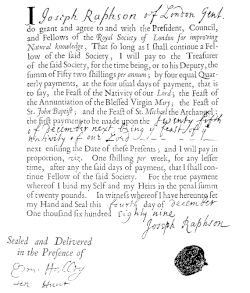 I Joseph Raphson of London Gent.
do grant and agree to and with the President, Council,
and Fellows of the Royal Society of London for improving
Natural knowledge, That so long as I shall continue a Fel-
low of the said Society, I will pay to the Treasurer
of the said Society, for the time being, or to his Deputy, the
summ of Fifty two shillings per annum; by four equal Quar-
terly payments, at the four usual days of payment, that is
to say, the Feast of the Nativity of our Lord; the Feast of
the Annuntiation of the Blessed Virgin Mary; the Feast of
St. John Baptist; and the Feast of St. Michael the Archangel;
the first payment to be made upon the twenty fifth
of december next being ye feast of ye
nativity of our Lord
next ensuing the Date of these Presents; and I will pay in
proportion, viz. One shilling per week, for any lesser
time, after any the said days of payment, that I shall con-
tinue Fellow of the said Society. For the true payment
whereof I bind my Self and my Heirs in the penal summ
of twenty pounds. In witness whereof I have hereunto set
my Hand and Seal this fourth day of december
One thousand six hundred Eighty nine
Joseph Raphson
Sealed and Delivered
in the Presence of
Edm. Halley
Hunt